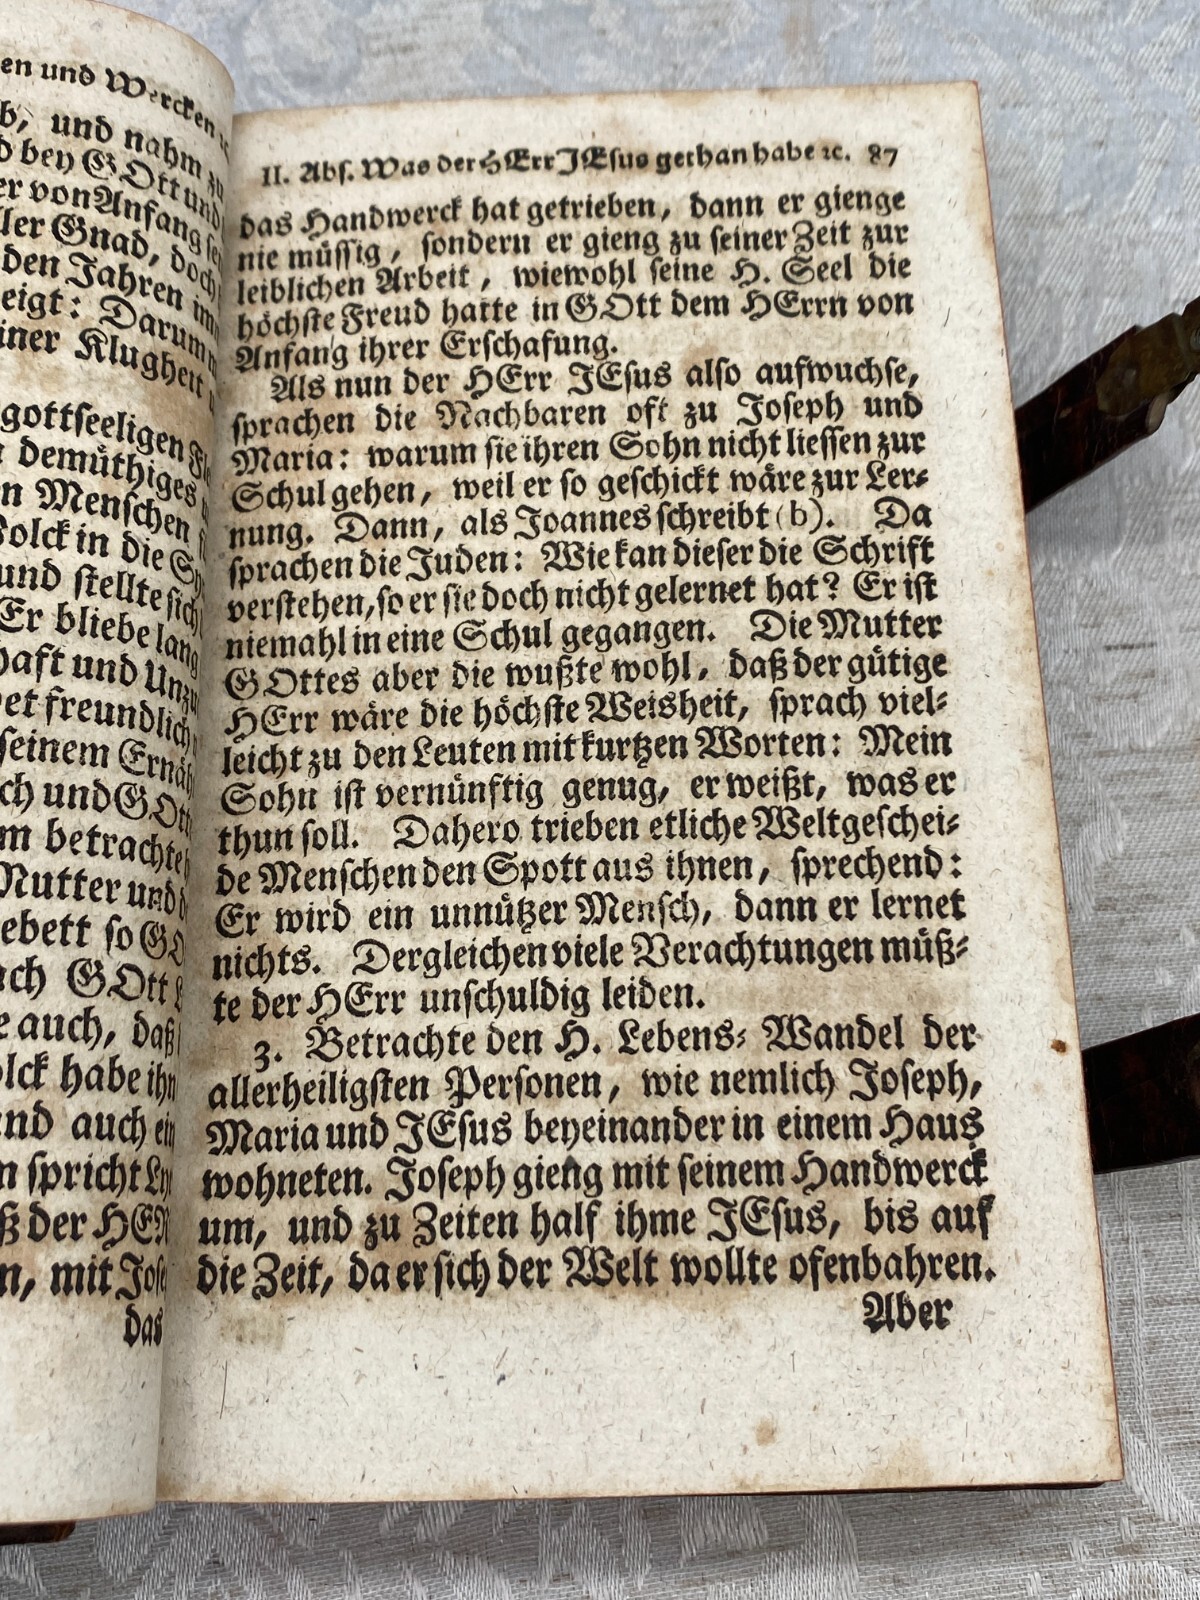 en und Wercken ꝛc
b, und nahm zu
d bey GOtt und
er von Anfang
ller Gnad, doch
den Jahren im
eigt: Darum
iner Klugheit
gottseeligen
demüthiges
n Menschen
Volck in die
und stellte sich
Er bliebe lang
haft und
et freundlich
seinem
ch und GOtt
m betrachte
Mutter und
ebett so
ach GOtt
e auch, daß
olck habe ihn
und auch ein
n spricht
ß der
n, mit
das
II. Abs. Was der HErr JEsus gethan habe ꝛc. 87
das Handwerck hat getrieben, dann er gienge
nie müssig, sondern er gieng zu seiner Zeit zur
leiblichen Arbeit, wiewohl seine H. Seel die
höchste Freud hatte in GOtt dem HErrn von
Anfang ihrer Erschafung.
Als nun der HErr JEsus also aufwuchse,
sprachen die Nachbaren oft zu Joseph und
Maria: warum sie ihren Sohn nicht liessen zur
Schul gehen, weil er so geschickt wäre zur Ler⸗
nung. Dann, als Joannes schreibt (b). Da
sprachen die Juden: Wie kan dieser die Schrift
verstehen, so er sie doch nicht gelernet hat? Er ist
niemahl in eine Schul gegangen. Die Mutter
GOttes aber die wußte wohl, daß der gütige
HErr wäre die höchste Weisheit, sprach viel⸗
leicht zu den Leuten mit kurtzen Worten: Mein
Sohn ist vernünftig genug, er weißt, was er
thun soll. Dahero trieben etliche Weltgeschei⸗
de Menschen den Spott aus ihnen, sprechend:
Er wird ein unnützer Mensch, dann er lernet
nichts. Dergleichen viele Verachtungen müß⸗
te der HErr unschuldig leiden.
3. Betrachte den H. Lebens⸗ Wandel der
allerheiligsten Personen, wie nemlich Joseph,
Maria und JEsus beyeinander in einem Haus
wohneten. Joseph gieng mit seinem Handwerck
um, und zu Zeiten half ihme JEsus, bis auf
die Zeit, da er sich der Welt wollte ofenbahren.
Aber